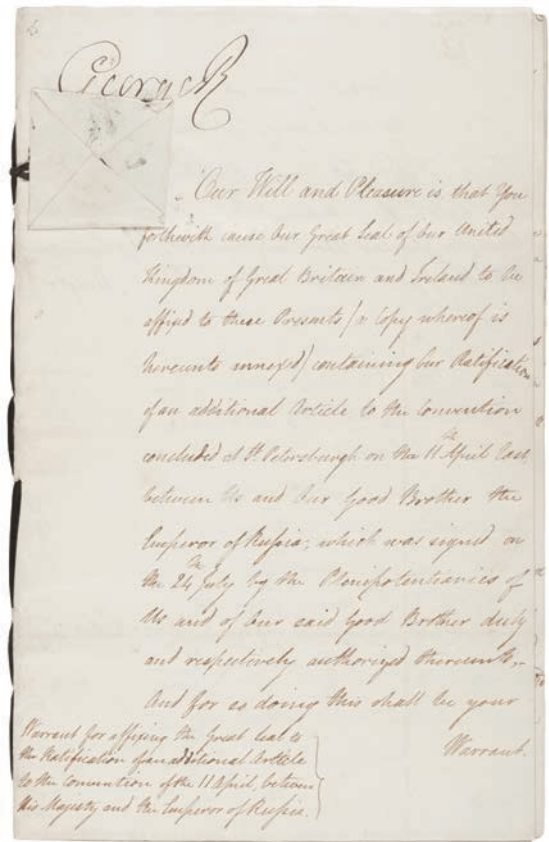 George R
Our Will and Pleasure is that You
forthwith cause Our Great Seal of Our United
Kingdom of Great Britain and Ireland to be
affixed to these Presents (a Copy whereof is
hereunto annexed) containing Our Ratification
of an additional Article to the Convention
concluded at St. Petersburgh on the 11th April last,
between Us and Our Good Brother the
Emperor of Russia; which was signed on
the 24th July by the Plenipotentiaries of
Us and of Our said Good Brother duly
and respectively authorized thereunto,
And for so doing this shall be your
Warrant.
Warrant for affixing the Great Seal to
the Ratification of an additional Article
to the Convention of the 11 April, between
His Majesty and the Emperor of Russia.